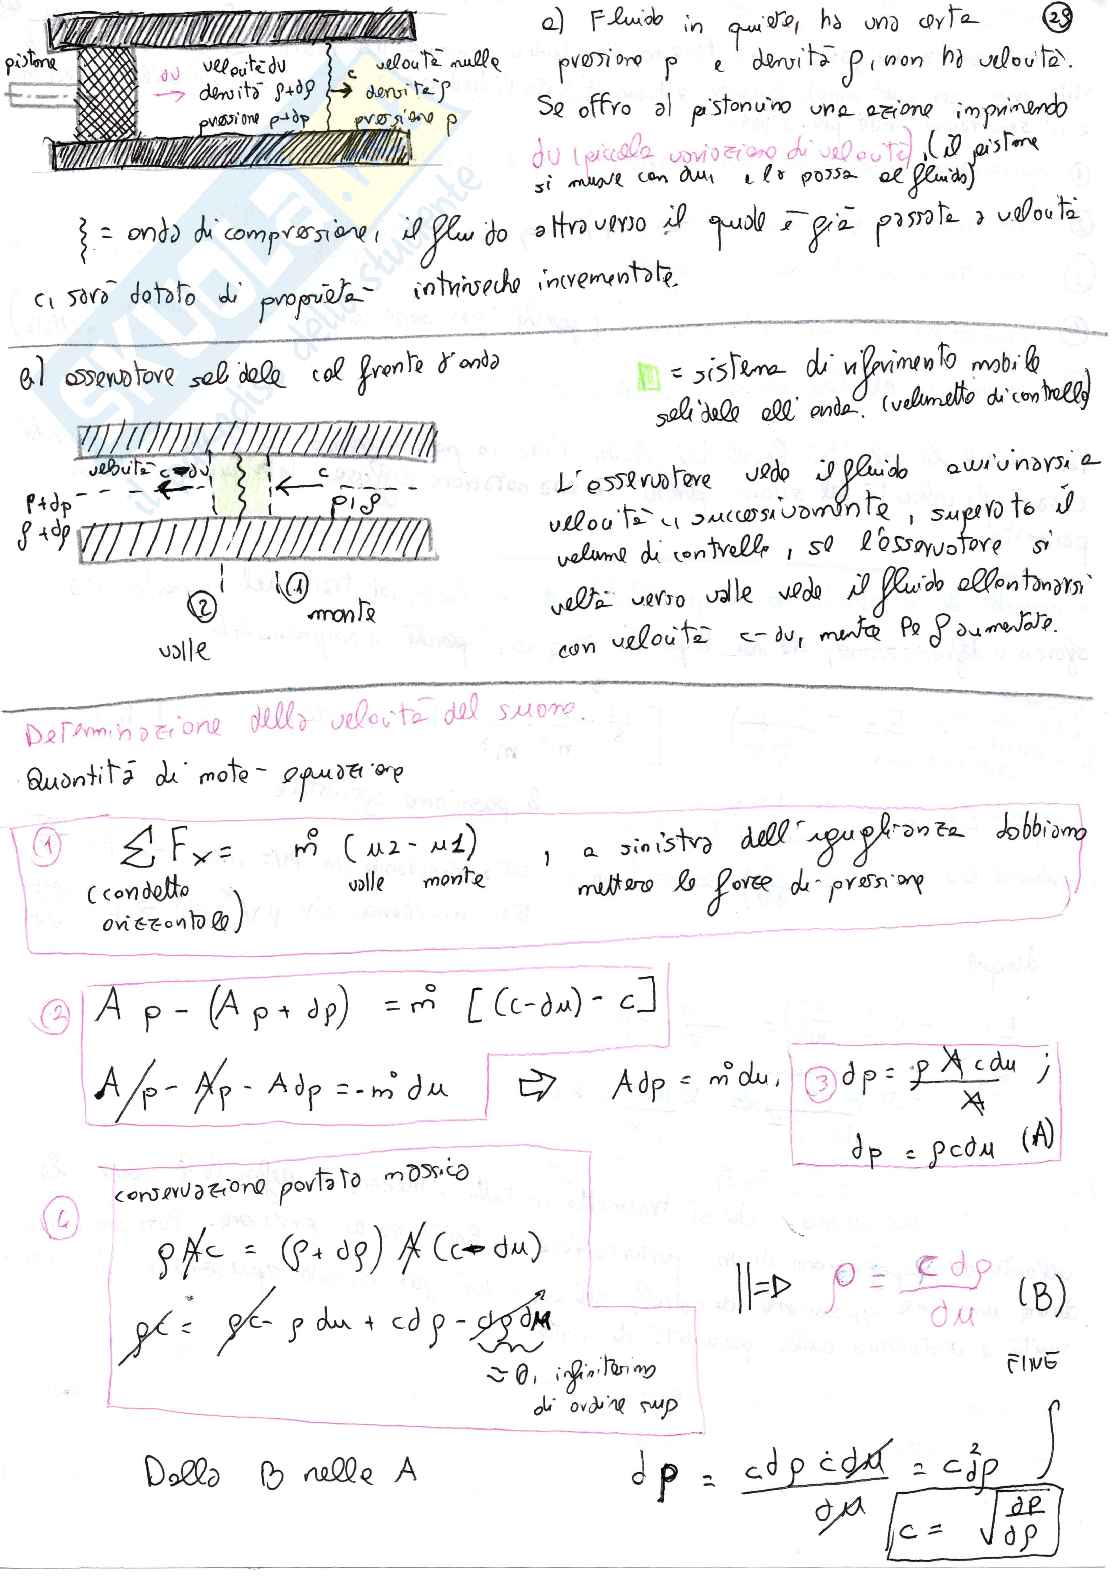 a) Fluido in quiete, ha una certa
29
pressione p e densità ρ, non ha velocità.
Se offro al pistoncino una azione imprimendo
du (piccola variazione di velocità), (il pistone
si muove con du, e lo passa al fluido)
pistone
du
velocità du
densità ρ+dρ
pressione p+dp
c
velocità nulla
densità ρ
pressione p
= onda di compressione, il fluido attraverso il quale è già passata a velocità
c, sarà dotato di proprietà intrinseche incrementate.
b) osservatore solidale col fronte d'onda
= sistema di riferimento mobile
solidale all'onda. (volumetto di controllo)
velocità c-du
c
p+dp
ρ+dρ
p, ρ
2
1
monte
valle
L'osservatore vede il fluido avvicinarsi a
velocità c, successivamente, superato il
volume di controllo, se l'osservatore si
volta verso valle vede il fluido allontanarsi
con velocità c-du, mentre p e ρ aumentate.
Determinazione della velocità del suono.
Quantità di moto - equazione
1
ΣFx = ṁ (u2 - u1) , a sinistra dell'uguaglianza dobbiamo
(condotto valle monte mettere le forze di pressione
orizzontale)
2
A p - (A p + dp) = ṁ [(c-du) - c]
A p - A p - A dp = - ṁ du ⇒ A dp = ṁ du,
3
dp = ρ A c du / A ;
dp = ρ c du (A)
4
conservazione portata massica
ρ A c = (ρ + dρ) A (c - du)
ρc = ρc - ρ du + c dρ - dρ du
≈ 0, infinitesimo
di ordine sup
||⇒ ρ = c dρ / du (B)
FINE
Dalla B nella A
dp = c dρ c du / du = c² dρ
c = √(dp/dρ)
SKUOLA